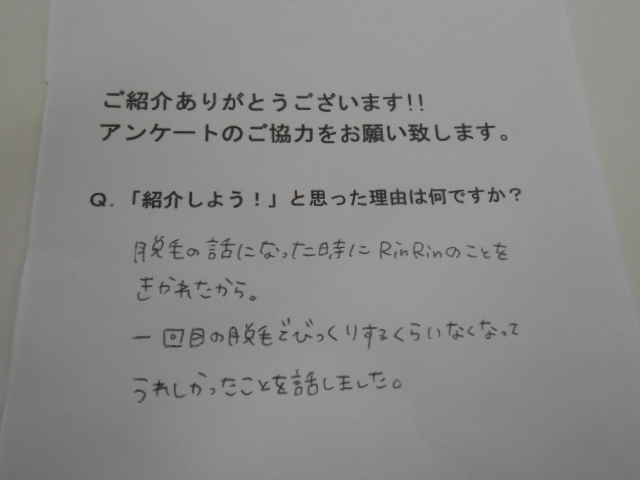 ご紹介ありがとうございます!!
アンケートのご協力をお願い致します。
Q.「紹介しよう!」と思った理由は何ですか?
脱毛の話になった時にRinRinのことを
きかれたから。
一回目の脱毛でびっくりするくらいなくなって
うれしかったことを話しました。